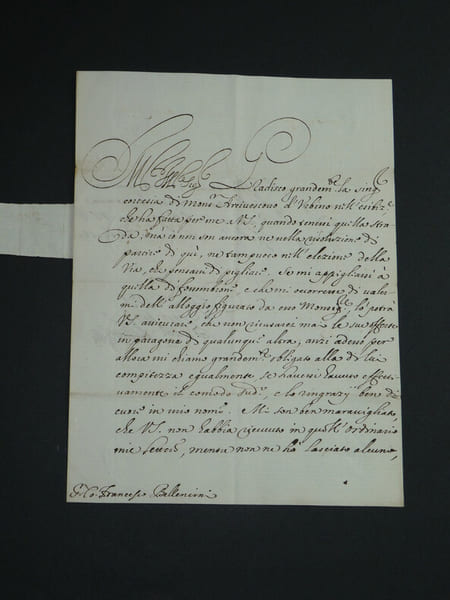 Gradisco grandem.te la sin
di mons.r Arrivescovo d'Urbino nell'esibiz.e
che ha fatta per me a VS. quando tenessi quella stra-
da, mà io non son ancora ne nella risoluzione di
partire di quì, ne tampoco nell'elezione della
Via, che pensarò di pigliare. Se mi appigliassi à
quella di e che mi occorresse di valer-
mi dell'alloggio figurato da esso Monsig.re, lo potrà
VS. assicurare, che non ricusarei mai le sue offerte
in paragone di qualunque altra, anzi adesso per
allora mi chiamo grandem.te obligato alla di lui
compitezza egualmente, se havessi havuto effetti-
vamente il comodo sud.o, e lo ringrazy ben di
cuore in mio nome. Mi son ben maravigliato
che VS. non habbia ricevuto in quest'ordinario
mie lettere, mentre non ne ho lasciato alcuno,
Co. Francesco Ballerini